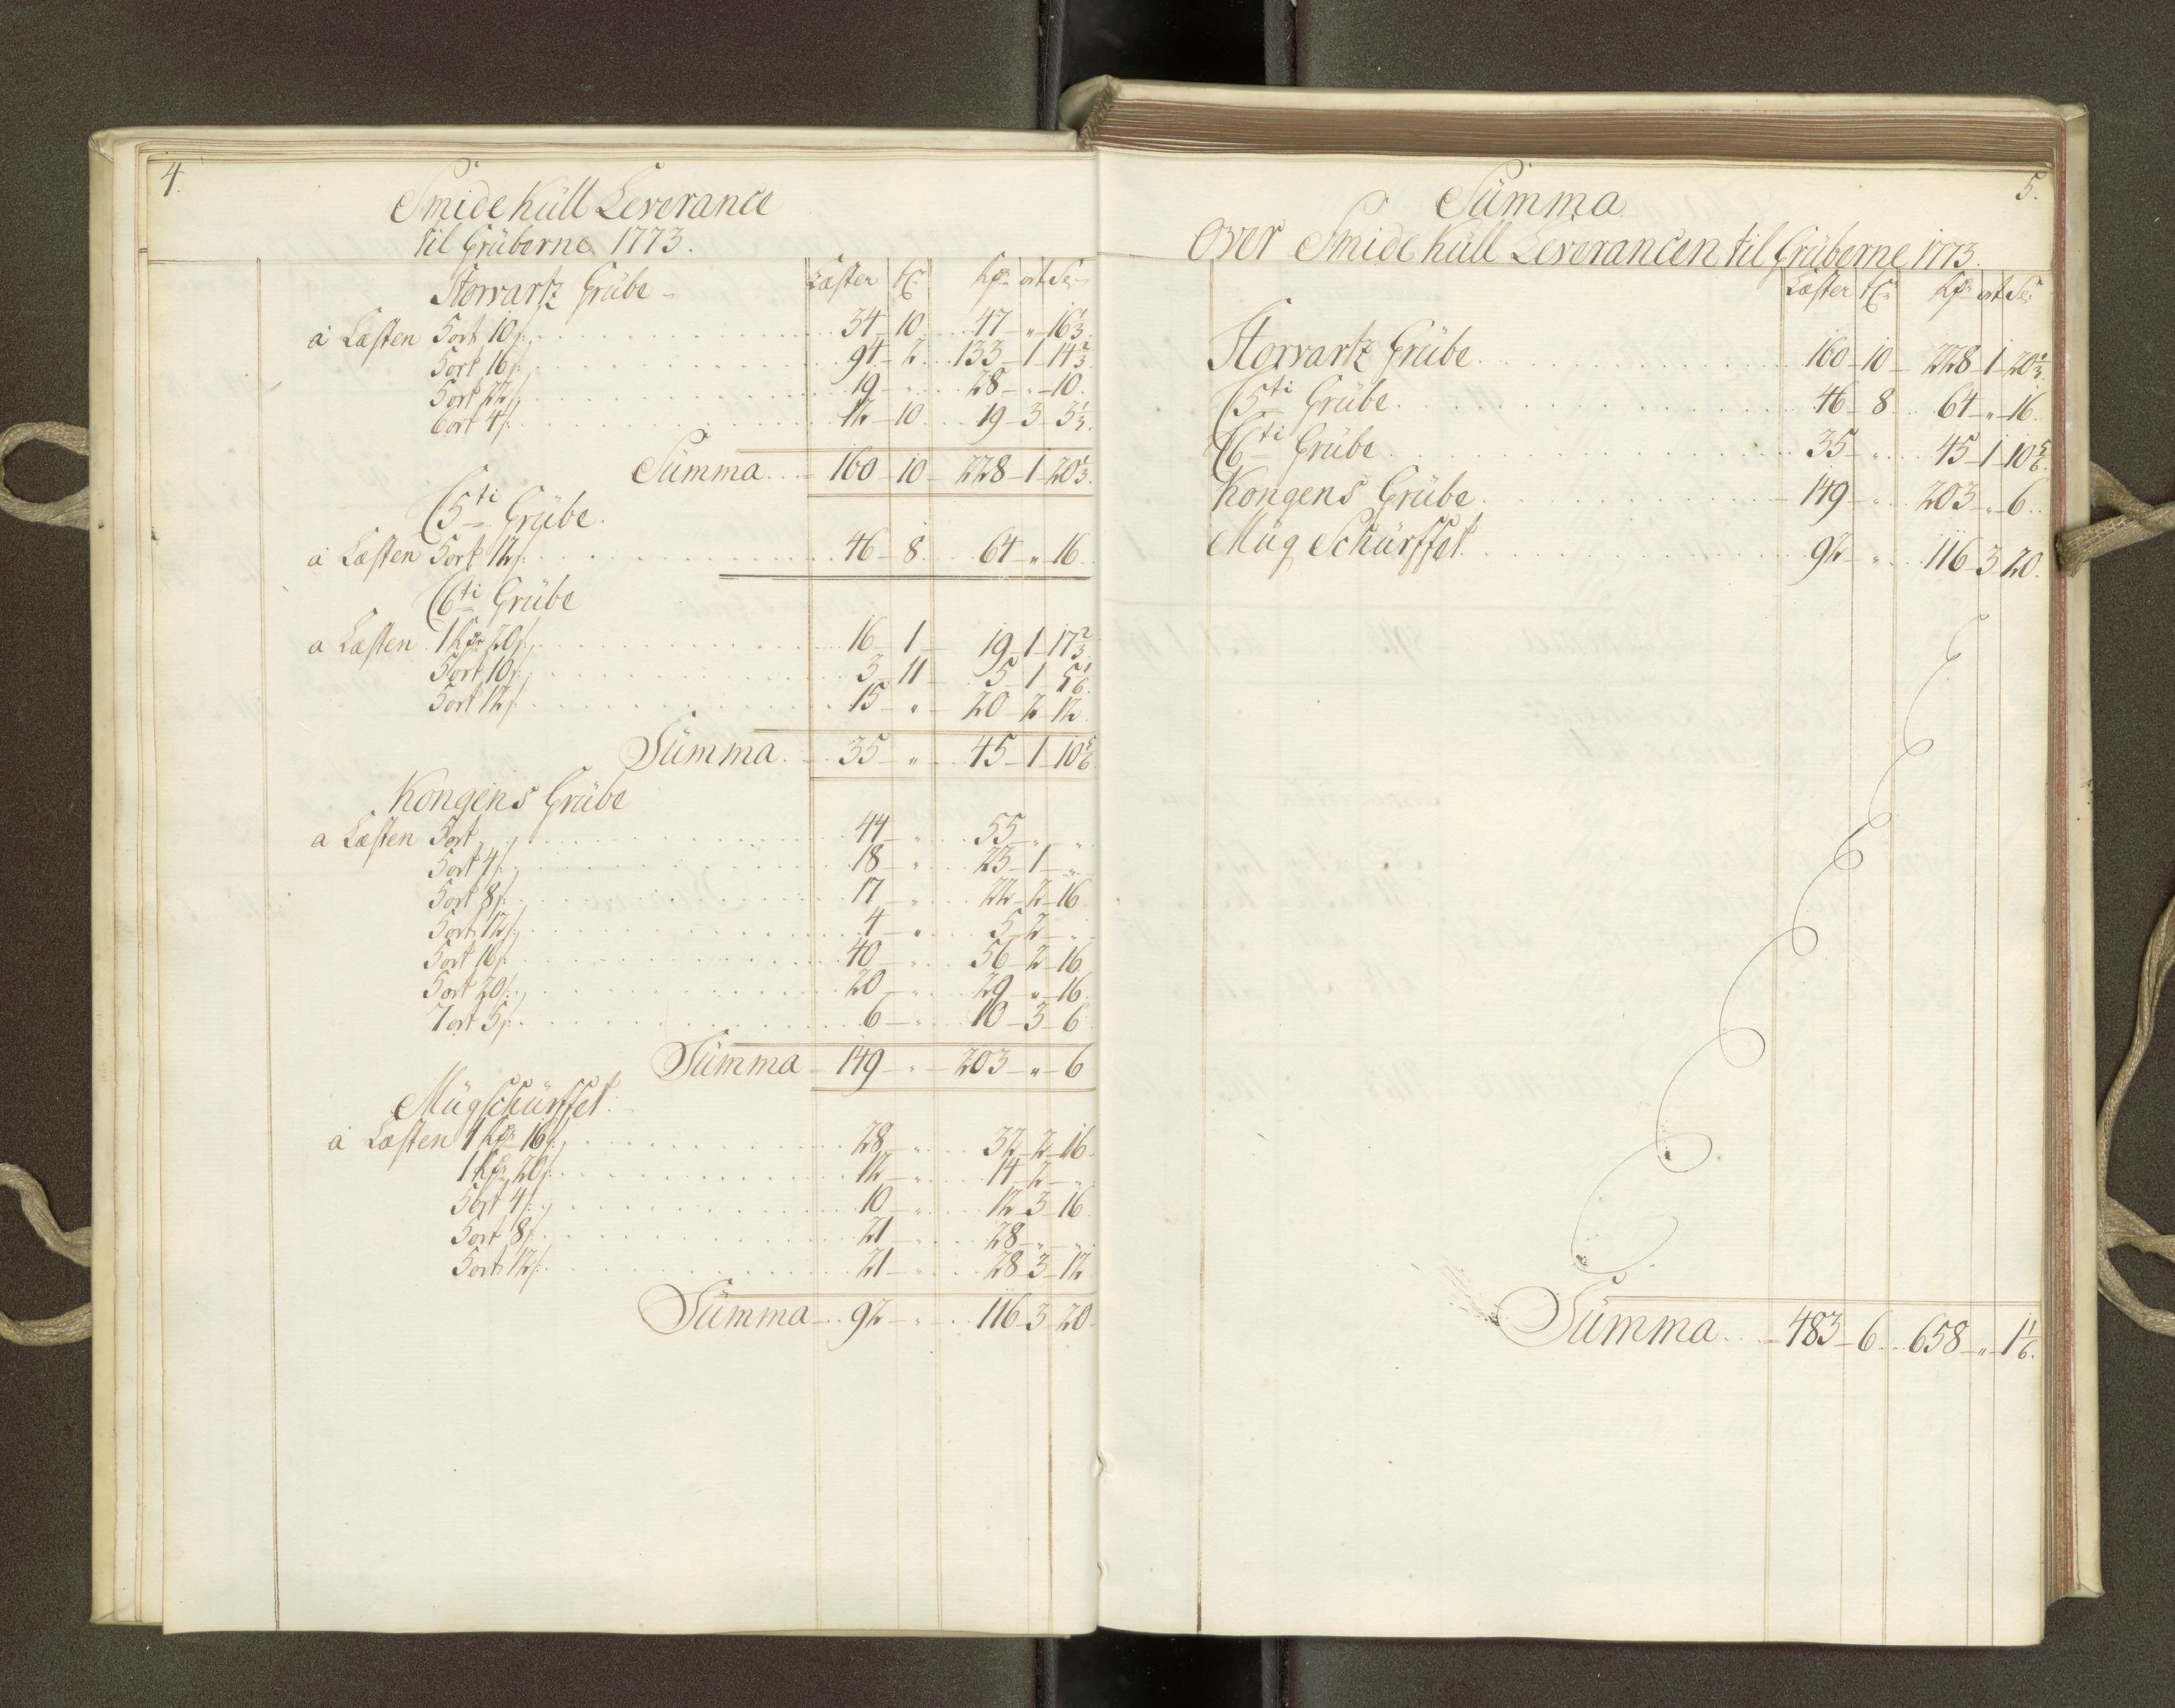 4.
Smide Kull Leverance
til Grüberne 1773.
Storvartz Grübe Læster tr. Rdr ort S.
à Læsten 5 ort 10 s. 34 10 47 " 16 1/3
5 ort 16 s. 94 2 133 1 14 2/3
5 ort 22 s. 19 " 28 " 10
6 ort 4 s. 12 10 19 3 3 1/3
Summa 160 10 228 1 20 1/3
C 5ti Grübe
à Læsten 5 ort 12 s. 46 8 64 " 16
C 6ti Grübe
a Læsten 1 Rdr 20 s. 16 1 19 1 17 2/3
5 ort 10 s. 3 11 5 1 5 1/6
5 ort 12 s. 15 " 20 2 12
Summa 35 " 45 1 10 5/6
Kongens Grübe
a Læsten 5 ort 44 " 55 " "
5 ort 4 s. 18 " 23 1 "
5 ort 8 s. 17 " 22 2 16
5 ort 12 s. 4 " 5 2 "
5 ort 16 s. 40 " 56 2 16
5 ort 20 s. 20 " 29 " 16
7 ort 5 s. 6 " 10 3 6
Summa 149 " 203 " 6
Mügschürffet
à Læsten 1 Rdr 16 s. 28 " 32 2 16
1 Rdr 20 s. 12 " 14 2 "
5 ort 4 s. 10 " 12 3 16
5 ort 8 s. 21 " 28 " "
5 ort 12 s. 21 " 28 3 12
Summa 92 " 116 3 20
5.
Summa
Over Smide Kull Leverancen til Grüberne 1773.
Læster tr. Rdr ort S.
Storvartz Grübe 160 10 228 1 20 1/3
C 5ti Grübe 46 8 64 " 16
C 6ti Grübe 35 " 45 1 10 5/6
Kongens Grübe 149 " 203 " 6
Müg Schürffet 92 " 116 3 20
Summa 483 6 658 " 1 1/6